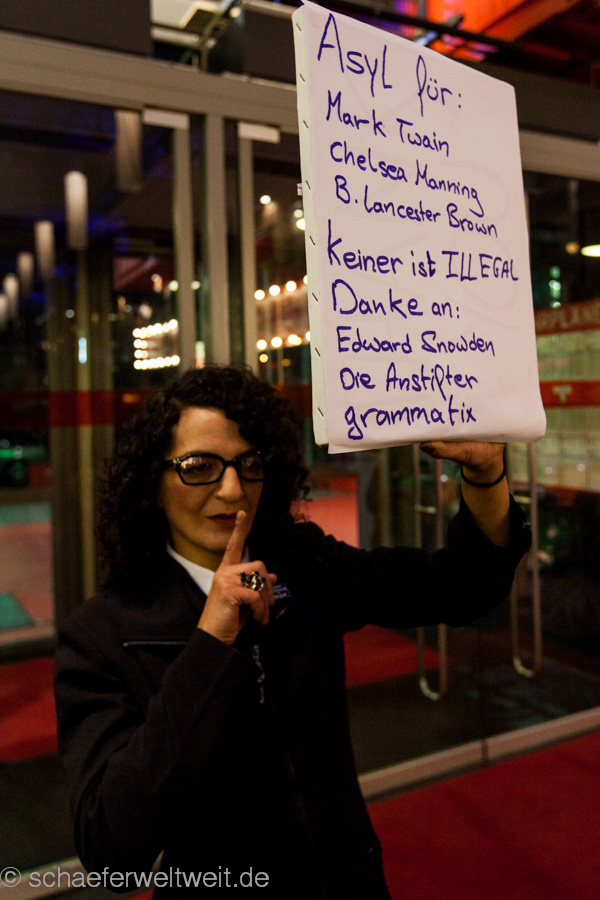 Asyl für:
Mark Twain
Chelsea Manning
B. Lancester Brown
Keiner ist ILLEGAL
Danke an:
Edward Snowden
Die Anstifter
grammatix
© schaeferweltweit.de